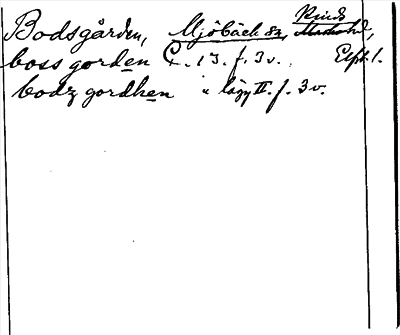 Bodsgården, Mjöbäck sn, Kinds hd,
boss gorden C. 13. f. 3 v. Elfsb. l.
bodz gordhen " lägg II. f. 3 v.